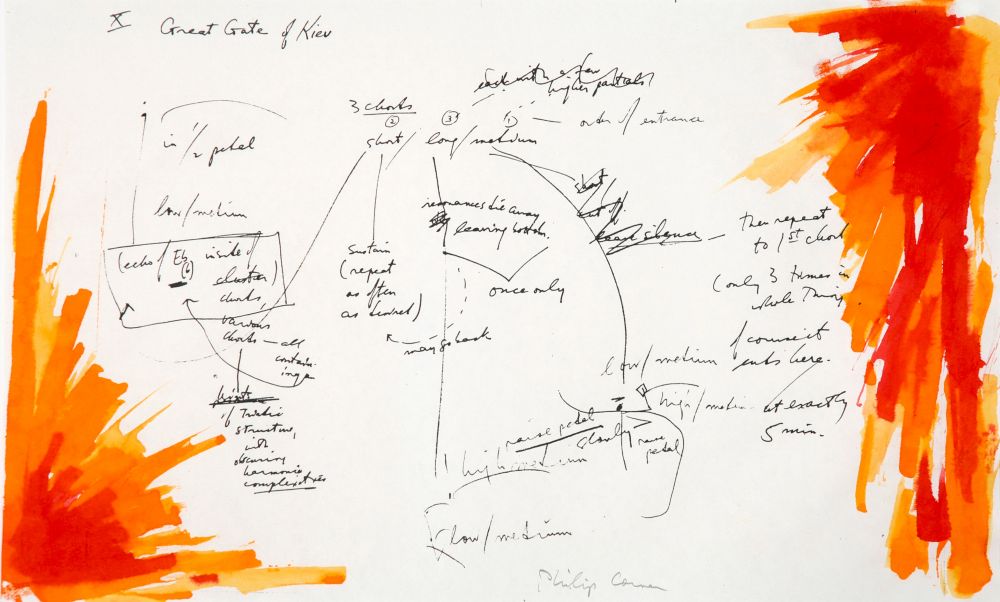 X Great Gate of Kiev
in 1/2 pedal
low/medium
(echo of Eb inside of
(b)
cluster)
chords,
various
chords – all
contain-
ing a
of Triadic
structure,
with
obscuring
harmonic
complexities
3 chords
② ③ ①
short/ long/medium
– order of entrance
with a few
higher partials
sustain
(repeat
as often
as desired)
resonances die away
leaving bottom.
once only
may go back
short
cut off
silence –
Then repeat
to 1st chord
(only 3 times in
whole Thing.
of course it
ends here.
at exactly
5 min.
low/medium
high/medium
raise pedal
slowly
raise
pedal
high/medium
low/medium
Philip Corner